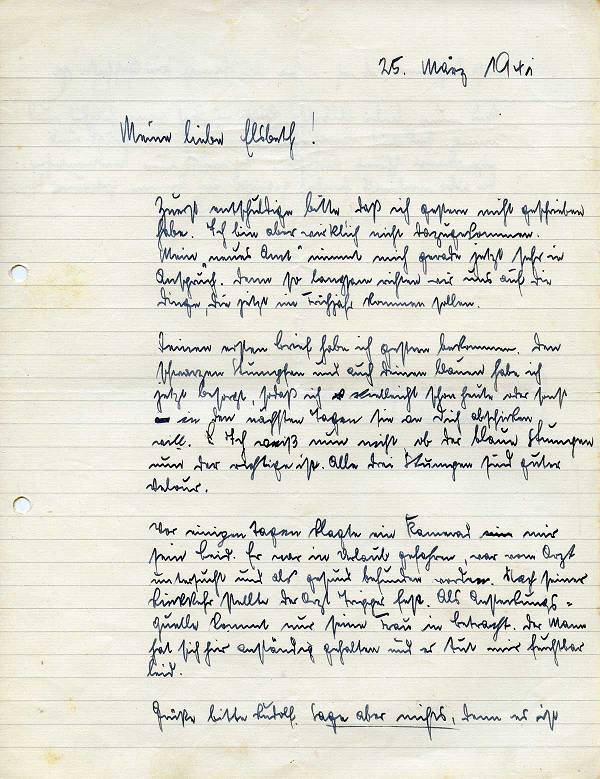 25. März 1941
Meine liebe Elsbeth!
Zuerst entschuldige bitte, daß ich gestern nicht geschrieben
habe. Ich bin aber wirklich nicht dazugekommen.
Mein "neues Amt" nimmt mich gerade jetzt sehr in
Anspruch. Denn so langsam richten wir uns auf die
Dinge, die jetzt im Frühjahr kommen sollen.
Deinen ersten Brief habe ich gestern bekommen. Den
schwarzen und auch deinen blauen habe ich
jetzt besorgt, sodaß ich vielleicht schon heute oder sonst
in den nächsten Tagen sie an Dich abschicken
will. Ich weiß nun nicht, ob der blaue
nun der richtige ist. Alle drei sind guter
Velour.
Vor einigen Tagen klagte ein Kamerad mir
sein Leid. Er war in Urlaub gefahren, war vom Arzt
untersucht und als gesund befunden worden. Nach seiner
Rückkehr stellte der Arzt Tripper fest. Als Ansteckungs=
quelle kommt nur seine Frau in betracht. Der Mann
hat sich hier anständig gehalten und er tut mir furchtbar
leid.
Grüße bitte Rudolf. Sage aber nichts, denn es ist